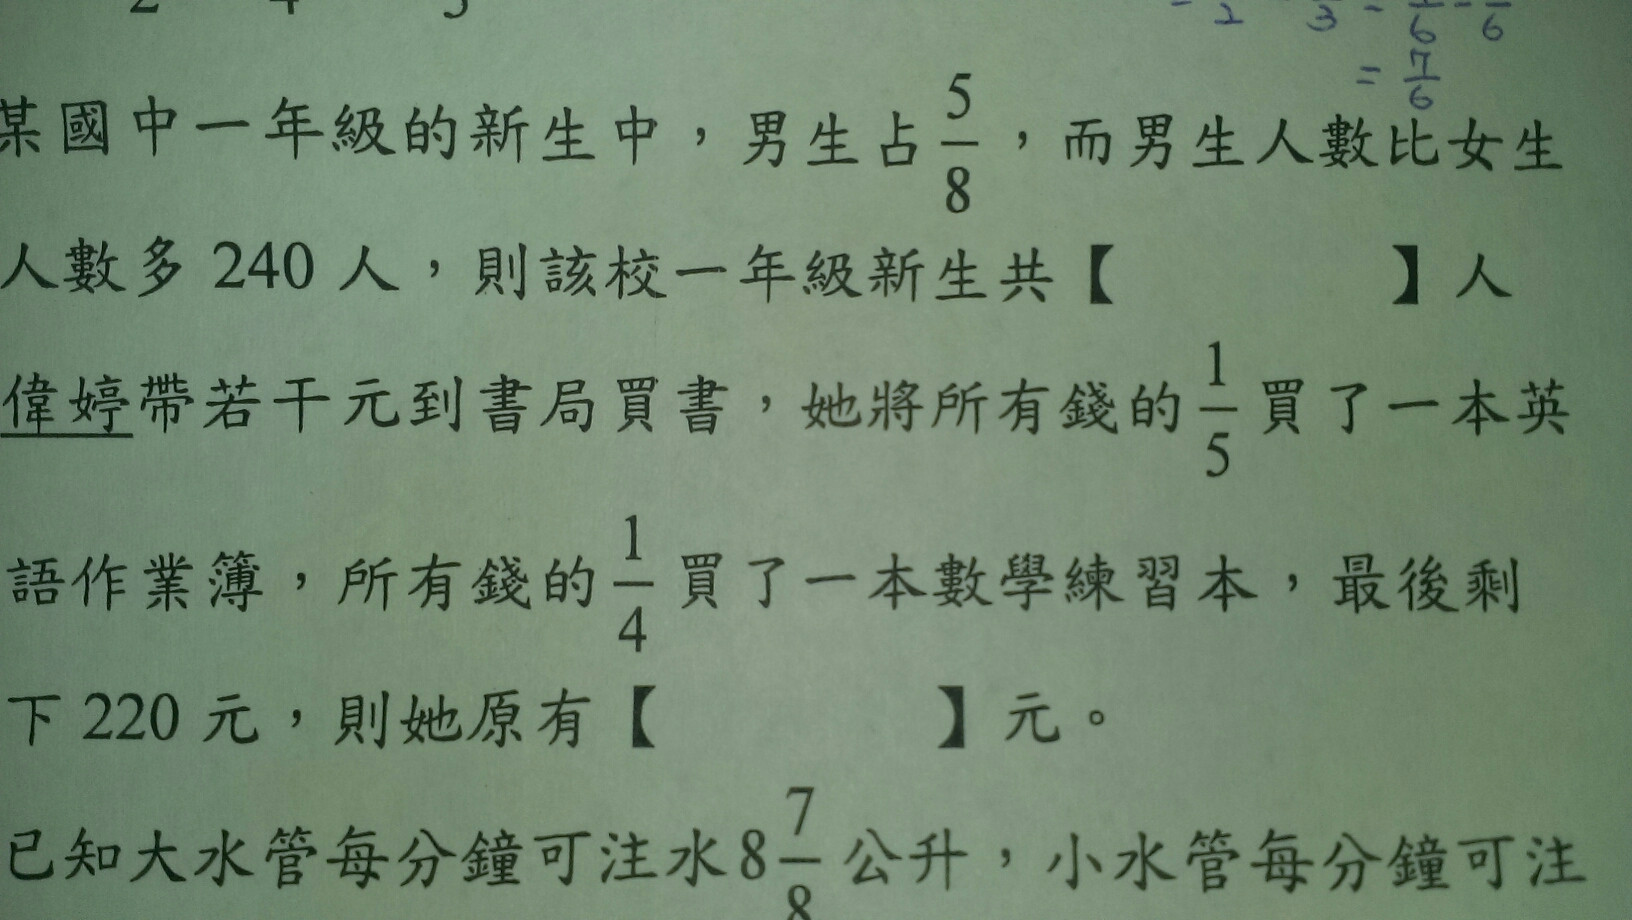 = 7/6
某國中一年級的新生中，男生占5/8，而男生人數比女生
人數多 240 人，則該校一年級新生共【 】人
偉婷帶若干元到書局買書，她將所有錢的1/5買了一本英
語作業簿，所有錢的1/4買了一本數學練習本，最後剩
下 220 元，則她原有【 】元。
已知大水管每分鐘可注水8 7/8公升，小水管每分鐘可注